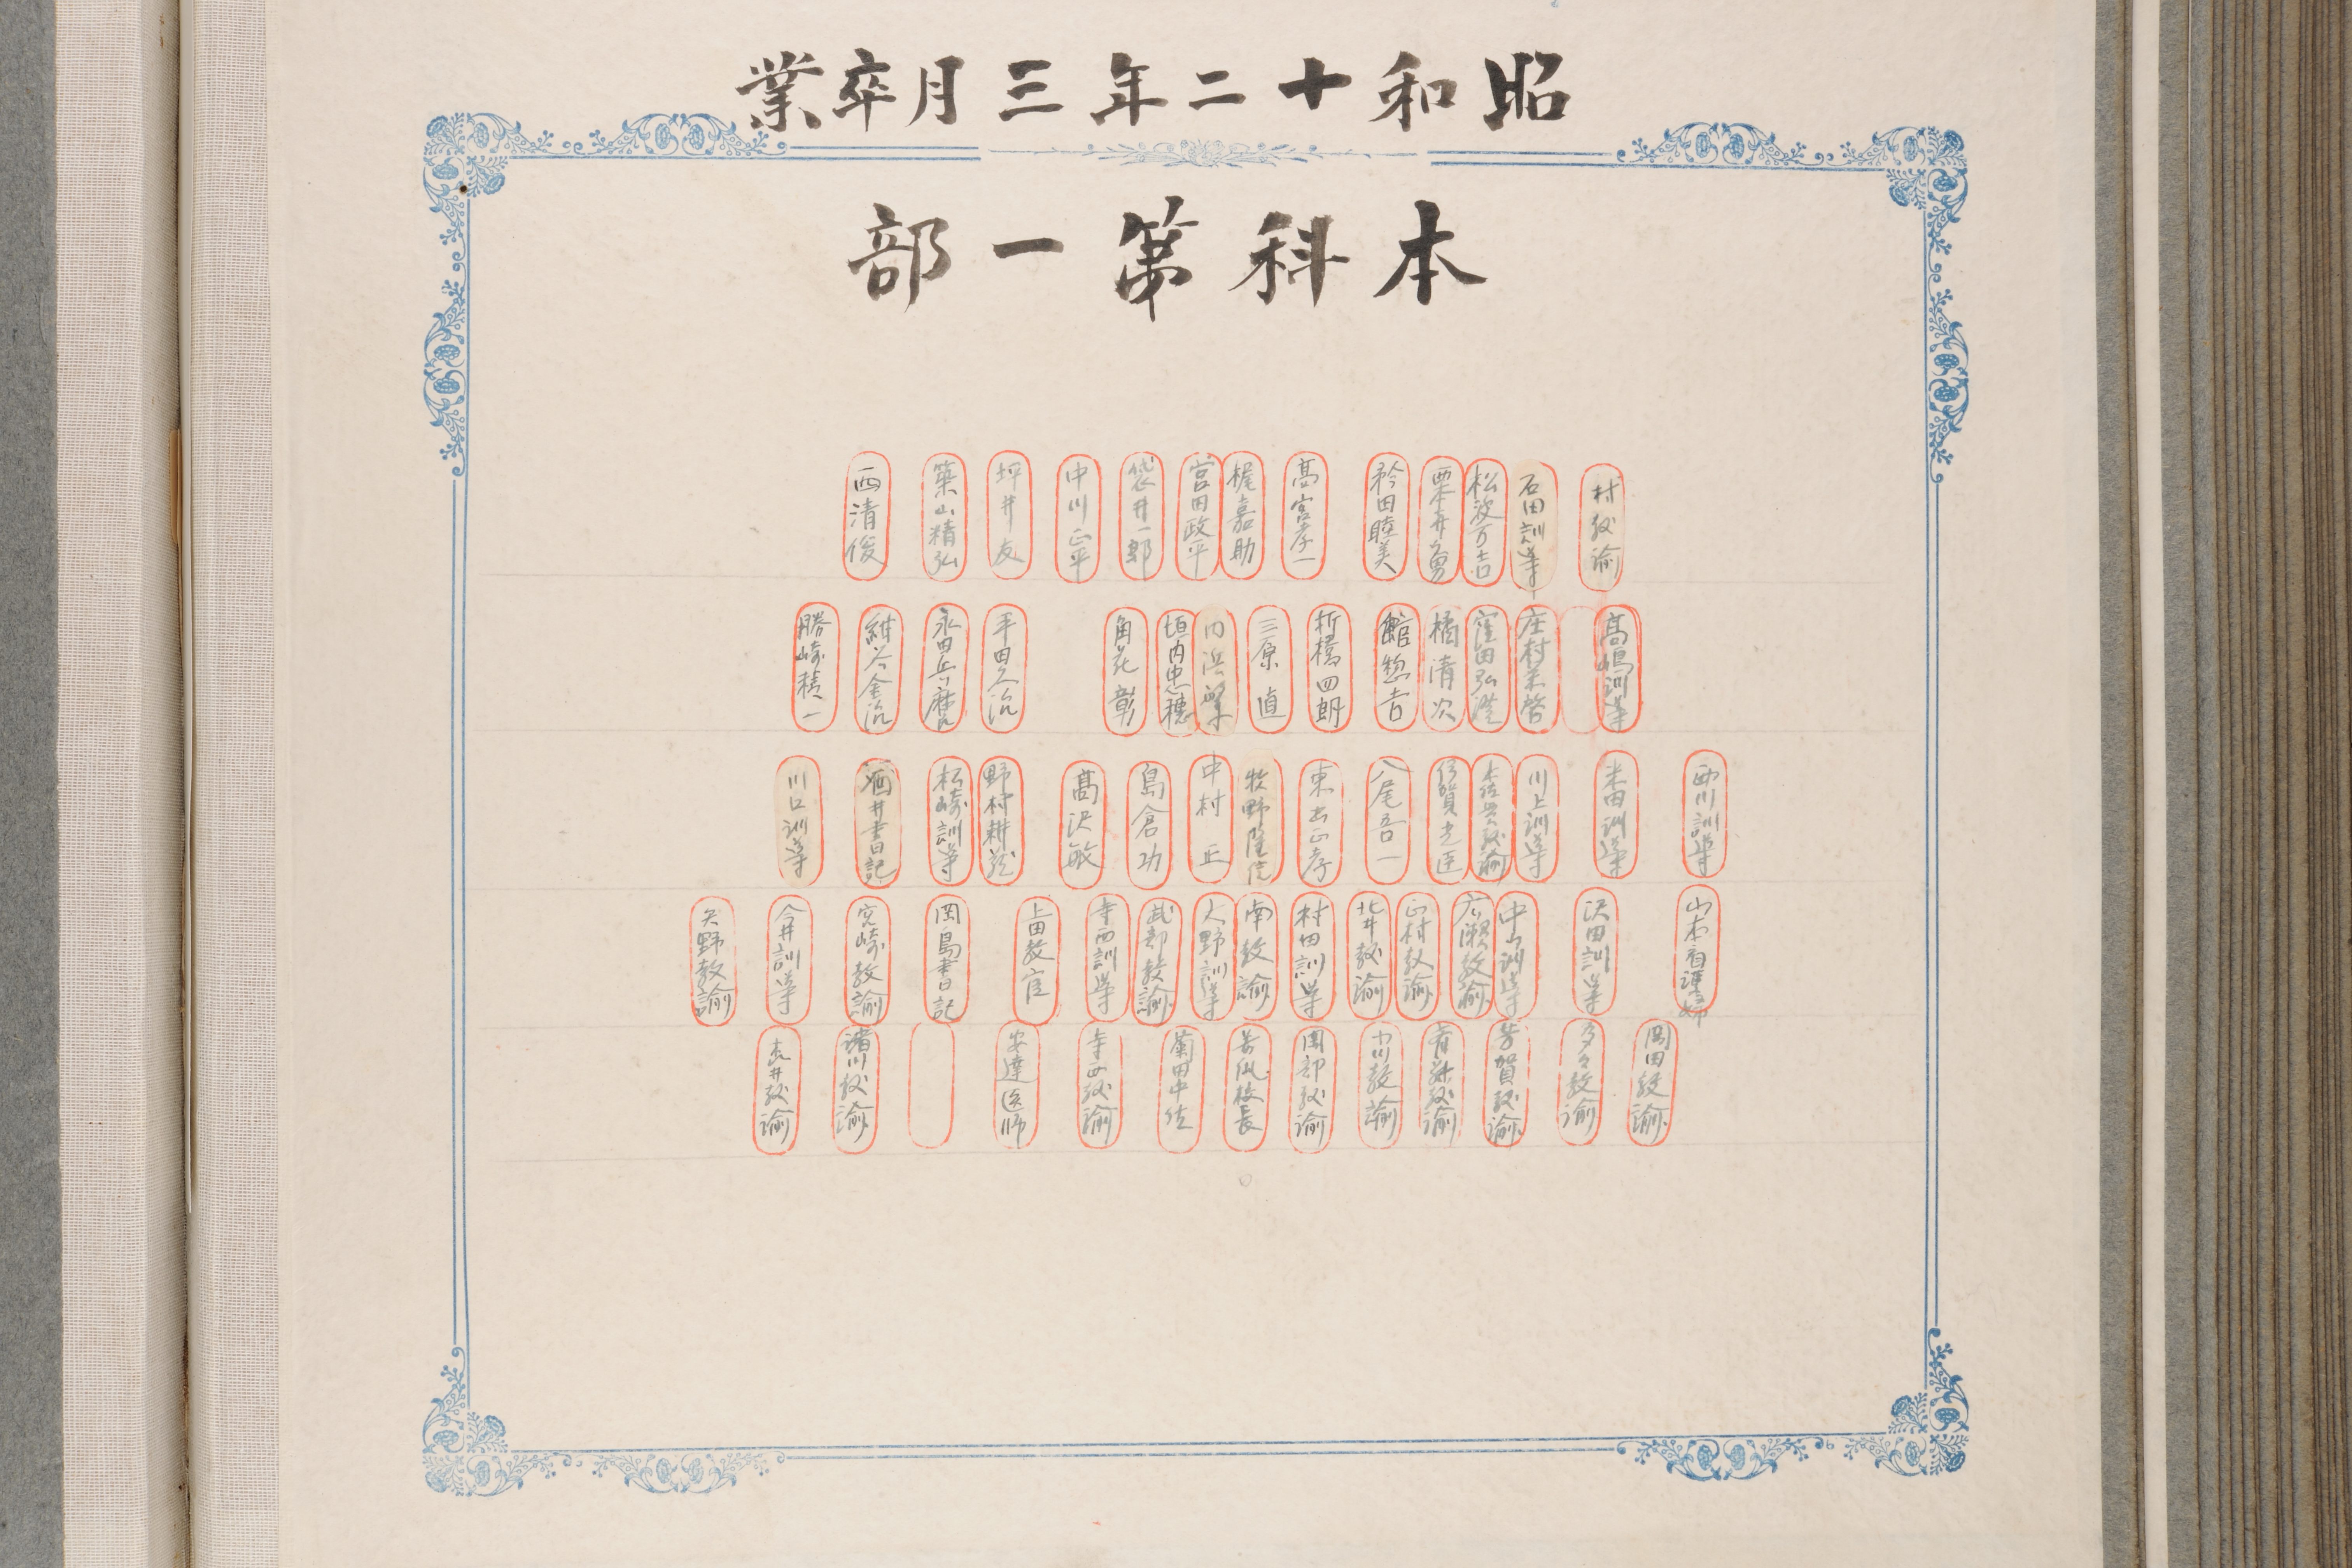 昭和十二年三月卒業
本科第一部
村教諭 石田訓導 松波万吉 粟井勇 矜田睦美 高宮孝一 梶嘉助 宮田政平 袋井一郎 中川正平 坪井友 築山精弘 西清俊
高嶋訓導 庄村栄啓 窪田弘澄 橘清次 舘惣吉 折橋四朗 三原直 内浜繁 垣内忠穂 角花彰 平田久治 永田兵麿 紺谷金治 勝崎積一
西川訓導 米田訓導 川上訓導 木佐貫教諭 伊賀光臣 八尾吾一 東出正孝 牧野隆信 中村正 島倉功 髙沢敏 野村耕 松崎訓導 酒井書記 川口訓導
山本看護婦 沢田訓導 中山訓導 広瀬教諭 正村教諭 北井教諭 村田訓導 南教諭 大野訓導 武部教諭 寺西訓導 上田教官 岡島書記 宮崎教諭 今井訓導 矢野教諭
岡田教諭 多々教諭 芳賀教諭 小川教諭 岡部教諭 校長 菊田中佐 寺西教諭 安達医師 諸川教諭 吉井教諭